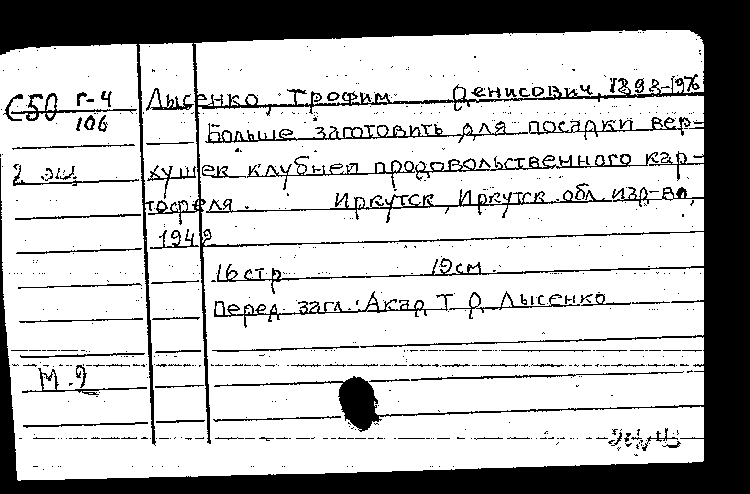 С50 Г-4 Лысенко, Трофим Денисович, 1898-1976
106
Больше заготовить для посадки вер-
2 экз хушек клубней продовольственного кар-
тофеля. Иркутск, Иркутск. обл. изд-во,
1942
16 стр 19 см.
Перед загл.: Акад. Т. Д. Лысенко
М. 9